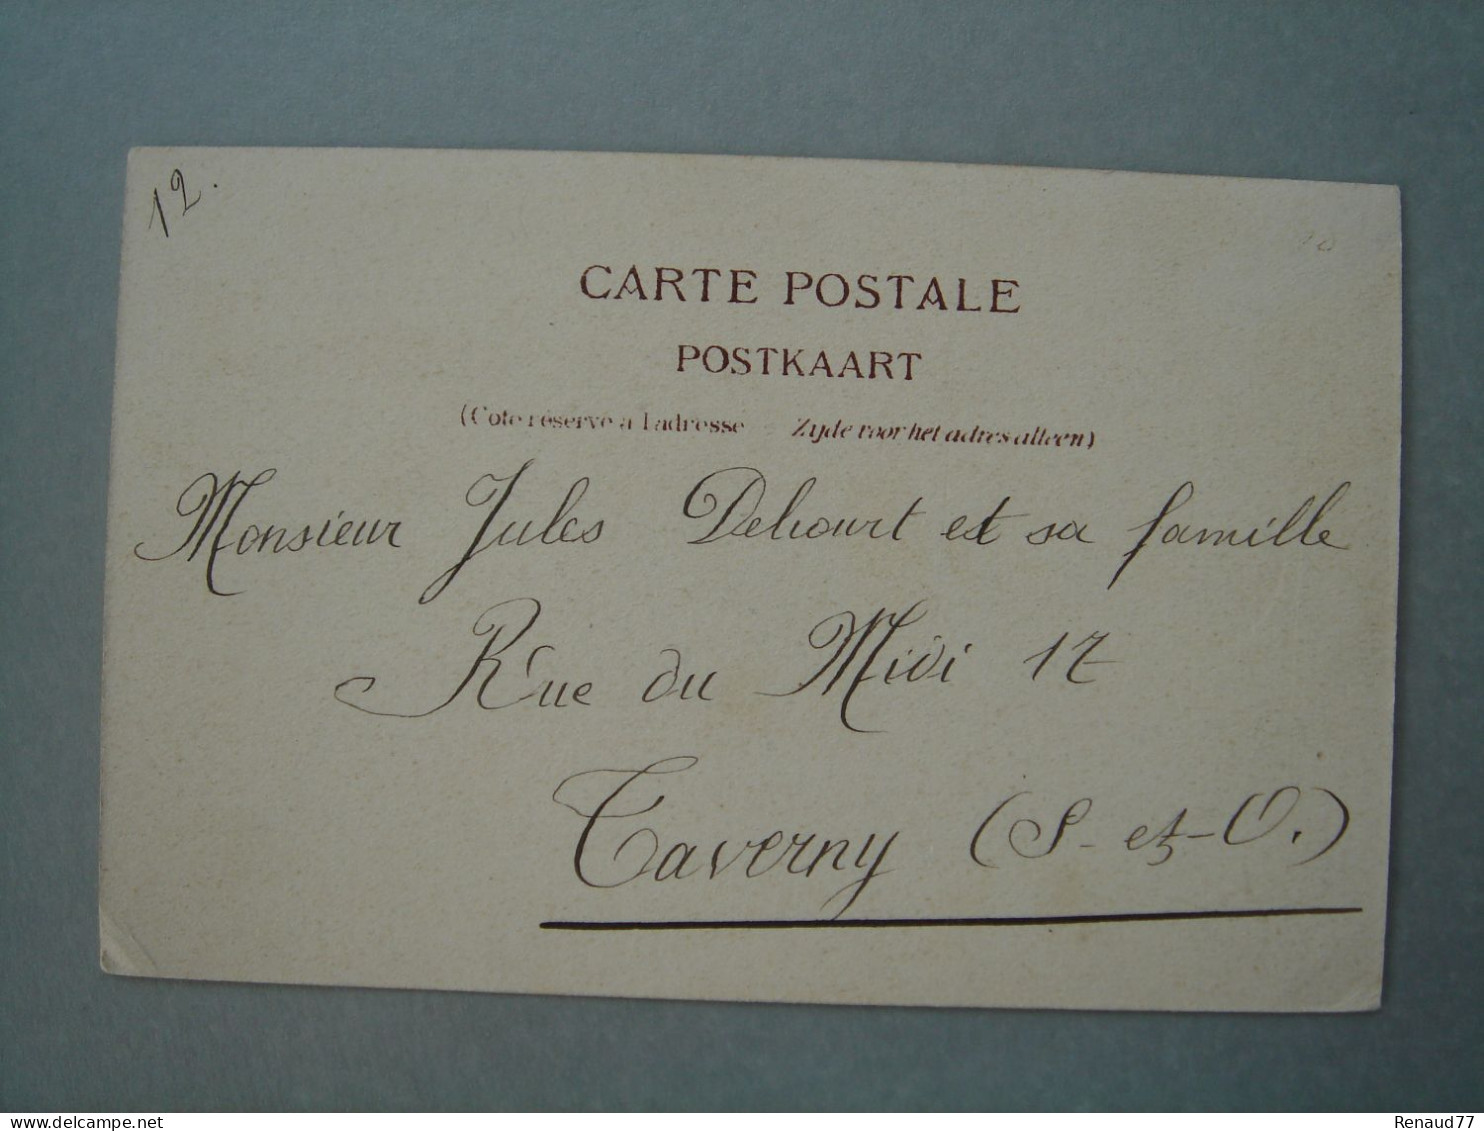 12.
CARTE POSTALE
POSTKAART
(Côté réservé à l'adresse – Zijde voor het adres alleen)
Monsieur Jules Delicourt et sa famille
Rue du Midi 17
Taverny (S-et-O.)
delcampe.net
Renaud77